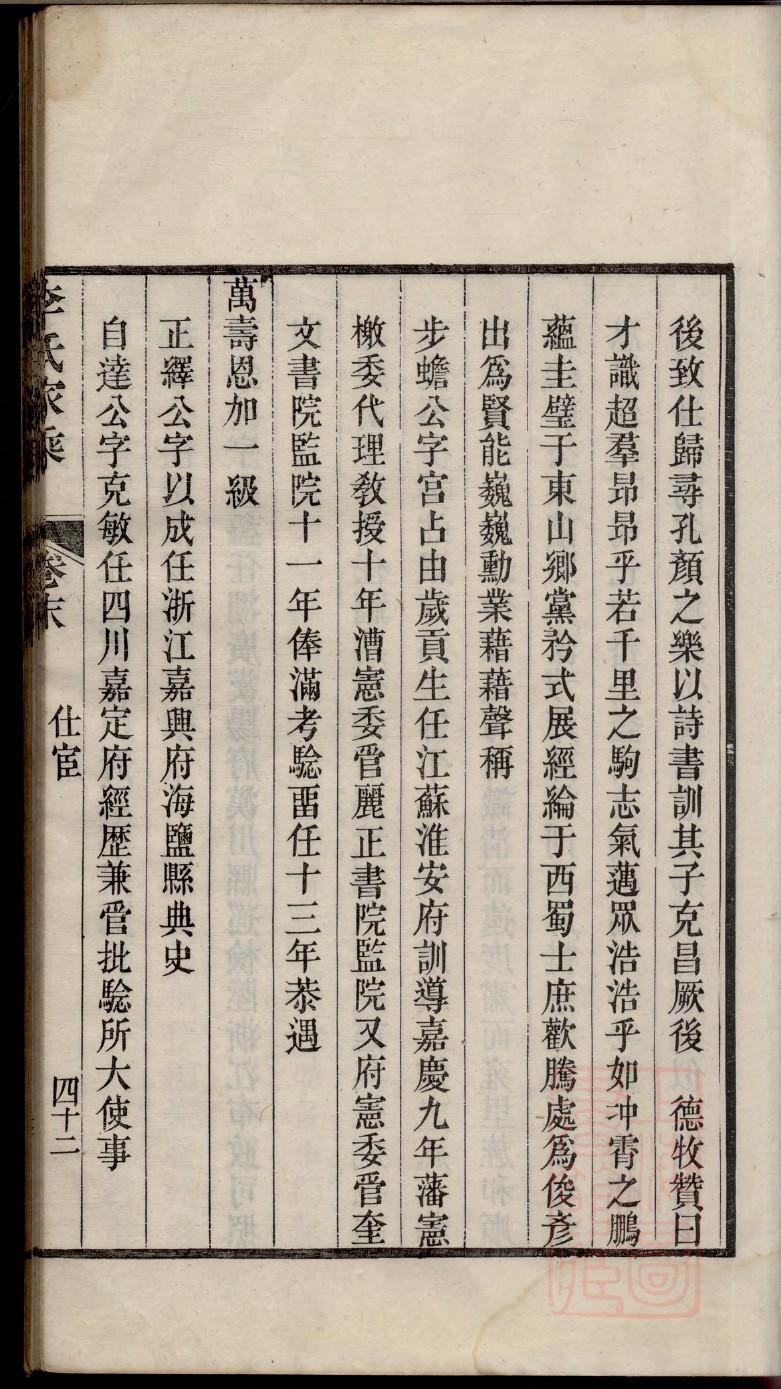 後致仕歸尋孔顏之樂以詩書訓其子克昌厥後　德牧贊曰
才識超羣昂昂乎若千里之駒志氣邁眾浩浩乎如冲霄之鵬
蘊圭璧于東山鄉黨矜式展經綸于西蜀士庶歡騰處爲俊彥
出爲賢能巍巍勳業藉藉聲稱
步蟾公字宮占由歲貢生任江蘇淮安府訓導嘉慶九年藩憲
檄委代理敎授十年漕憲委管麗正書院監院又府憲委管奎
文書院監院十一年俸滿考騐畱任十三年恭遇
萬壽恩加一級
正繹公字以成任浙江嘉興府海鹽縣典史
自達公字克敏任四川嘉定府經歷兼管批騐所大使事
李氏家乘　卷末　仕宦　四十二